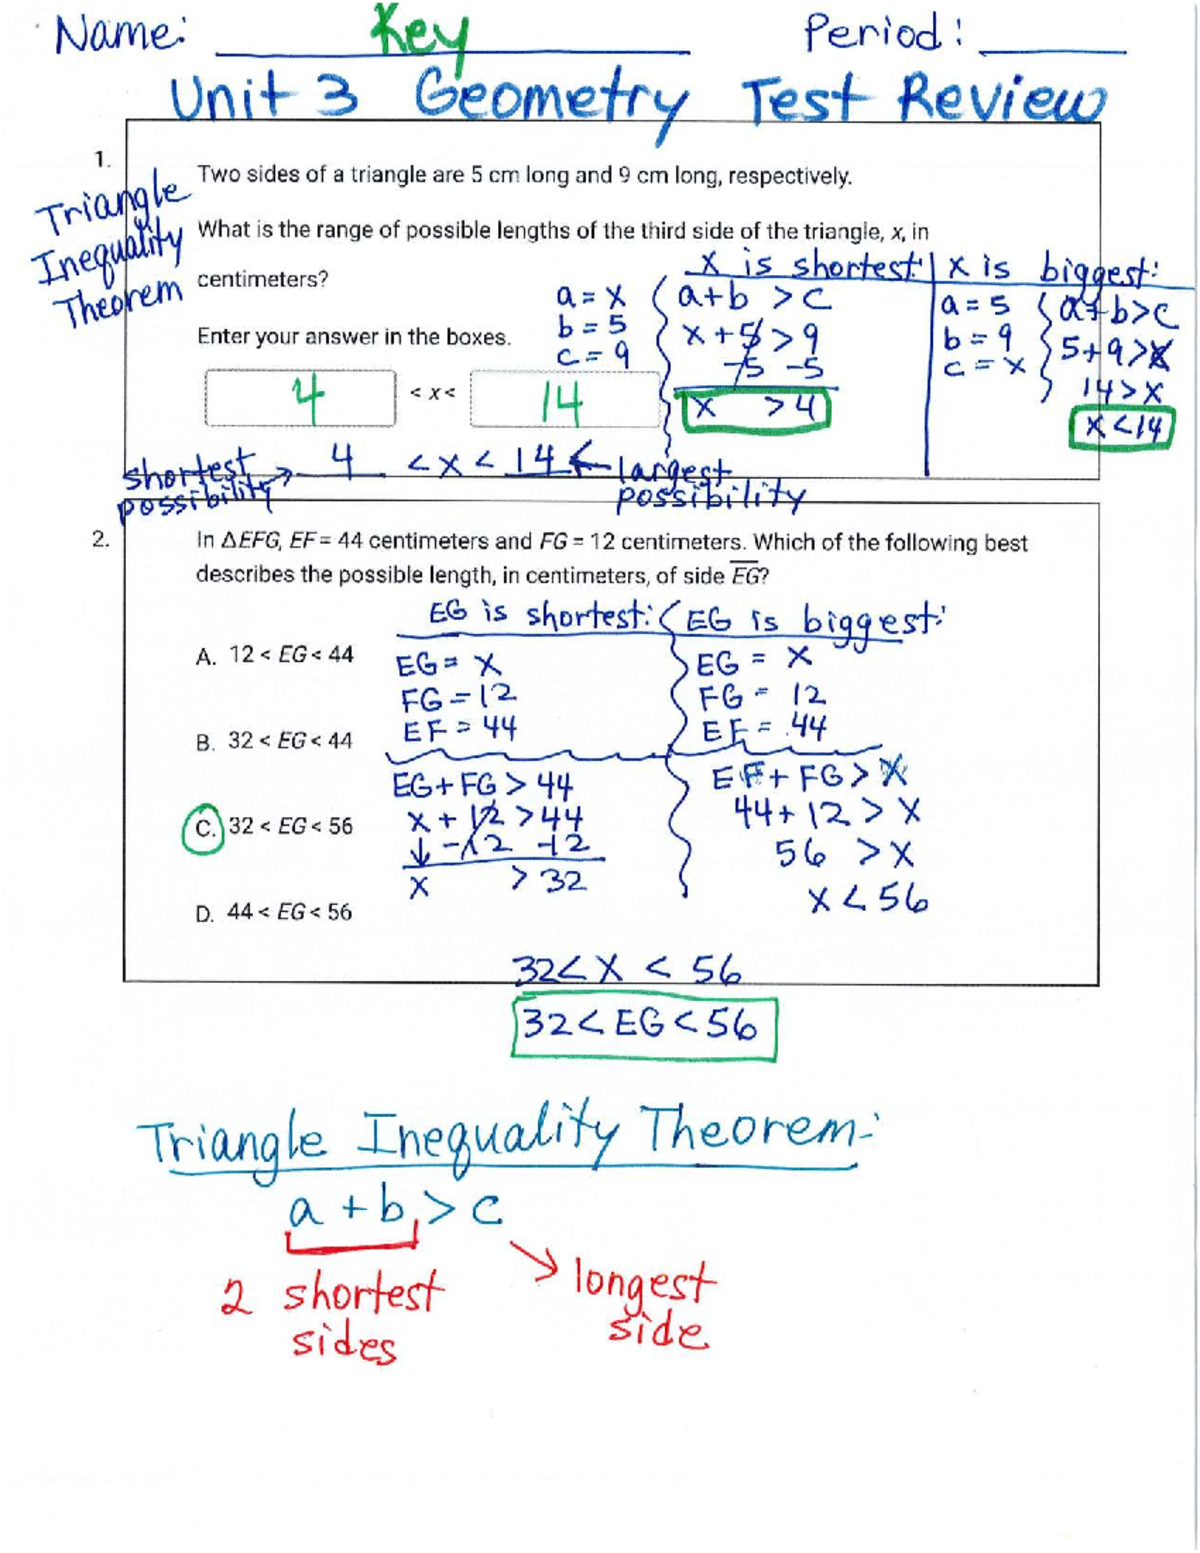 Name: Key Period:
Unit 3 Geometry Test Review
1.
Triangle
Inequality
Theorem
Two sides of a triangle are 5 cm long and 9 cm long, respectively.
What is the range of possible lengths of the third side of the triangle, x, in
centimeters?
Enter your answer in the boxes.
4 < x < 14
a = x
b = 5
c = 9
x is shortest:
a+b > c
x + 5 > 9
-5 -5
x > 4
x is biggest:
a = 5
b = 9
c = x
a+b>c
5+9>x
14>x
x<14
shortest
possibility
4 < x < 14
largest
possibility
2.
In ΔEFG, EF = 44 centimeters and FG = 12 centimeters. Which of the following best
describes the possible length, in centimeters, of side EG?
A. 12 < EG < 44
B. 32 < EG < 44
C. 32 < EG < 56
D. 44 < EG < 56
EG is shortest:
EG = x
FG = 12
EF = 44
EG + FG > 44
x + 12 > 44
↓ -12 -12
x > 32
EG is biggest:
EG = x
FG = 12
EF = 44
EF + FG > x
44 + 12 > x
56 > x
x < 56
32 < x < 56
32 < EG < 56
Triangle Inequality Theorem:
a + b > c
2 shortest
sides
longest
side